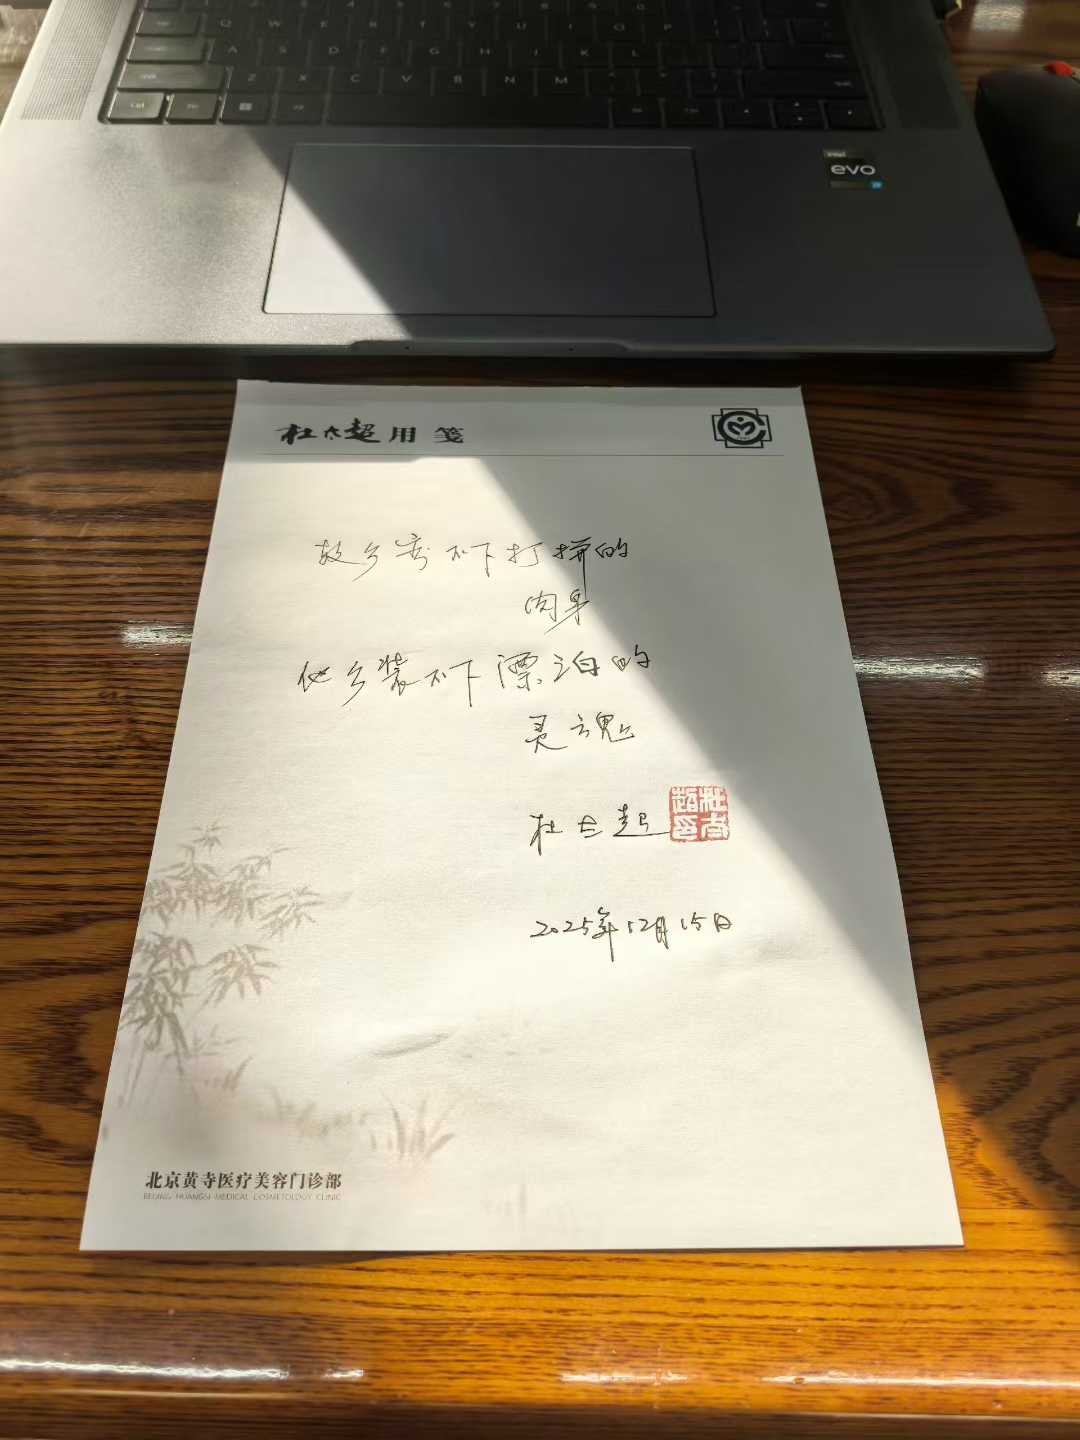 Q W E R T Y U I O P
A S D F G H J K L
Z X C V B N M
Ctrl
intel
evo
杜太超用笺
故乡容不下打拼的
肉身
他乡装不下漂泊的
灵魂
杜太超
杜太超印
2025年12月15日
北京黄寺医疗美容门诊部
BEIJING HUANGSI MEDICAL COSMETOLOGY CLINIC